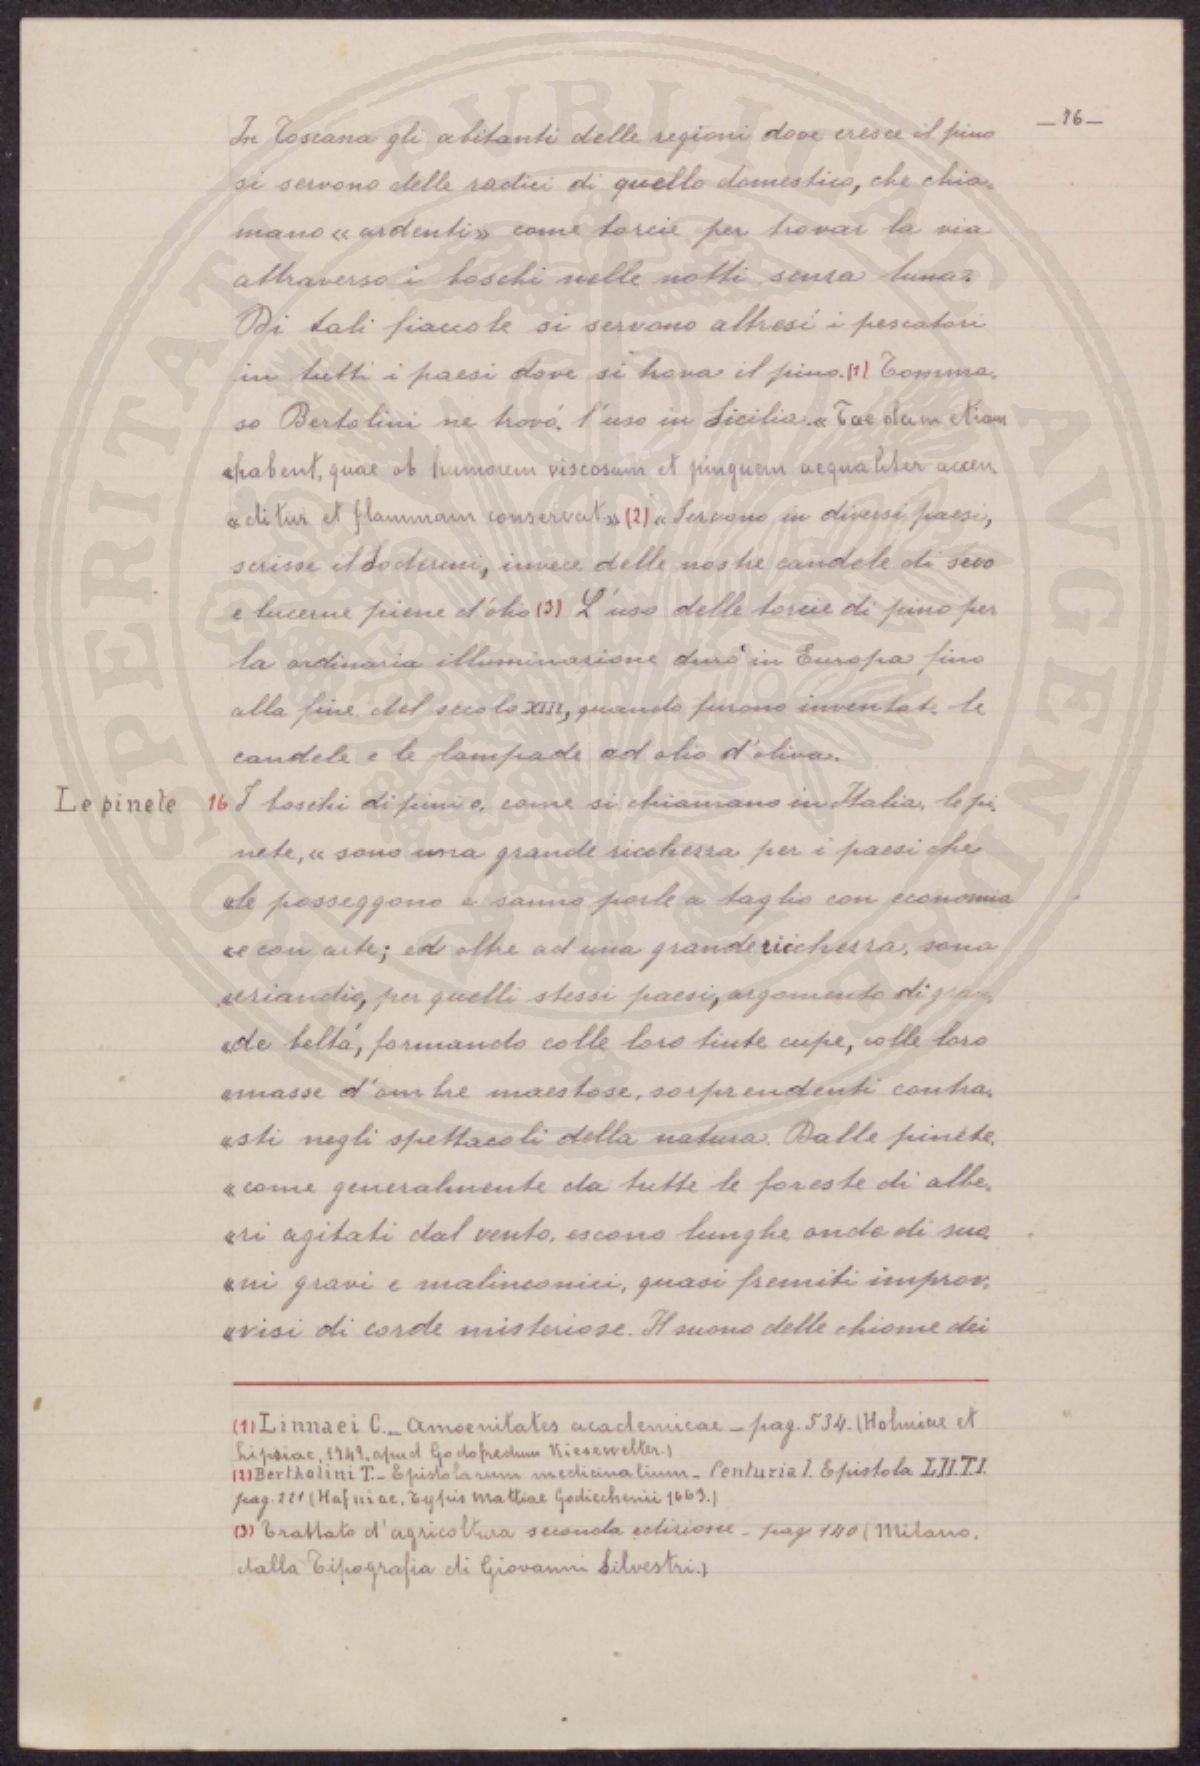 _16_
In Toscana gli abitanti delle regioni dove cresce il pino
si servono delle radici di quello domestico, che chia-
mano «ardenti» come torcie per trovar la via
attraverso i boschi nelle notti senza luna.
Di tali fiaccole si servono altresí i pescatori
in tutti i paesi dove si trova il pino.(1) Tomma-
so Bertolini ne trovó l'uso in Sicilia. «Taedam etiam
«habent, quae ob humorem viscosum et pinguem aequaliter accen-
«ditur et flammam conservat» (2) «Servono in diversi paesi,
scrisse il Soderini, invece delle nostre candele di sevo
e lucerne piene d'olio (3) L'uso delle torcie di pino per
la ordinaria illuminazione duró in Europa fino
alla fine del secolo XIII, quando furono inventate le
candele e le lampade ad olio d'oliva.
Le pinete 16 I boschi di pini o, come si chiamano in Italia, le pi-
nete, « sono una grande ricchezza per i paesi che
«le posseggono e sanno porle a taglio con economia
«e con arte; ed oltre ad una grande ricchezza, sono
«eziandio, per quelli stessi paesi, argomento di gran-
«de beltá, formando colle loro tinte cupe, colle loro
«masse d'ombre maestose, sorprendenti contra-
«sti negli spettacoli della natura. Dalle pinete,
«come generalmente da tutte le foreste di albe-
«ri agitati dal vento, escono lunghe onde di suo-
«ni gravi e malinconici, quasi fremiti improv-
«visi di corde misteriose. Il suono delle chiome dei
(1) Linnaei C._ Amoenitates academicae _ pag. 534. (Holmiae et
Lipsiae, 1749, apud Godofredum Kiesewetter.)
(2) Bertholini T._ Epistolarum medicinalium _ Centuria I. Epistola LII. T.I.
pag. 221 (Hafniae, Typis Mattiae Godicchenii 1663.)
(3) Trattato d'agricoltura seconda edizione _ pag. 140 (Milano,
dalla Tipografia di Giovanni Silvestri.)
PROSPERITATI PVBLICAE AVGENDAE